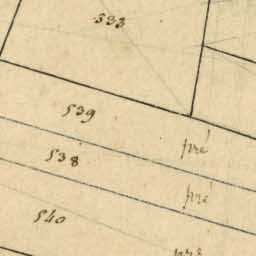 533
539
pré
538
pré
540
pré